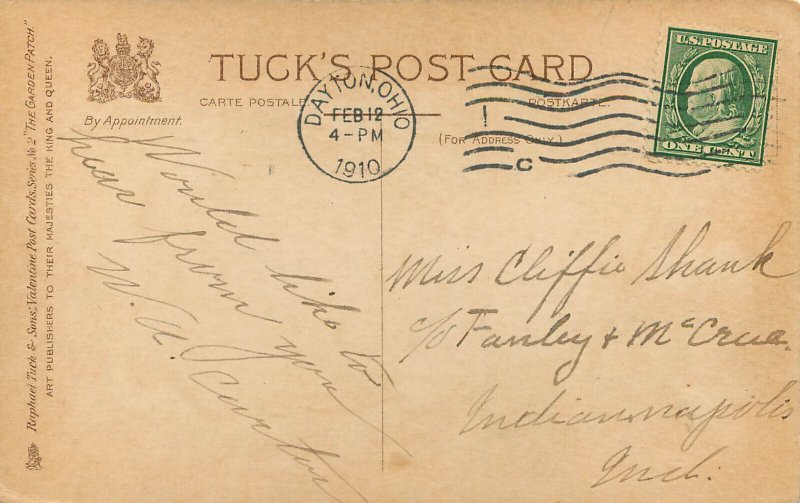 TUCK'S POST CARD
CARTE POSTALE
POSTKARTE.
(FOR ADDRESS ONLY.)
By Appointment.
Raphael Tuck & Sons' Valentine Post Cards. Series No. 2 "THE GARDEN PATCH."
ART PUBLISHERS TO THEIR MAJESTIES THE KING AND QUEEN.
DAYTON, OHIO
FEB 12
4-PM
1910
C
U.S. POSTAGE
ONE CENT
Would like to
hear from you
W. A. Carter
Miss Cliffie Shank
c/o Fanley & McCrea.
Indiannapolis
Ind.